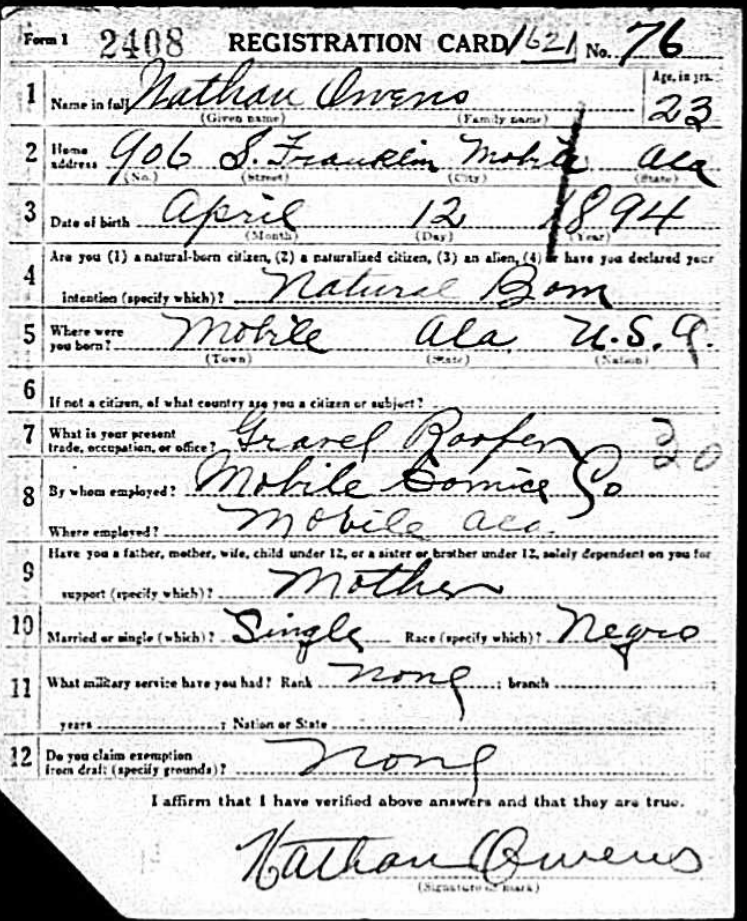 Form 1 2408 REGISTRATION CARD 1621 No. 76
1 Name in full Nathan Owens Age, in yrs.
(Given name) (Family name) 23
2 Home address 906 S. Franklin Mobile Ala
(No.) (Street) (City) (State)
3 Date of birth April 12 1894
(Month) (Day) (Year)
Are you (1) a natural-born citizen, (2) a naturalized citizen, (3) an alien, (4) or have you declared your
4 intention (specify which)? Natural Born
5 Where were you born? Mobile Ala U.S.A.
(Town) (State) (Nation)
6 If not a citizen, of what country are you a citizen or subject?
7 What is your present trade, occupation, or office? Gravel Roofer 20
8 By whom employed? Mobile Cornice Co
Where employed? Mobile Ala.
Have you a father, mother, wife, child under 12, or a sister or brother under 12, solely dependent on you for
9 support (specify which)? Mother
10 Married or single (which)? Single Race (specify which)? Negro
11 What military service have you had? Rank None ; branch ;
years ; Nation or State
12 Do you claim exemption from draft (specify grounds)? None
I affirm that I have verified above answers and that they are true.
Nathan Owens
(Signature or mark)